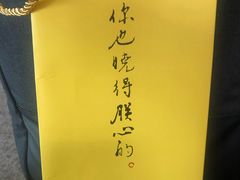 你也晓得朕心的。